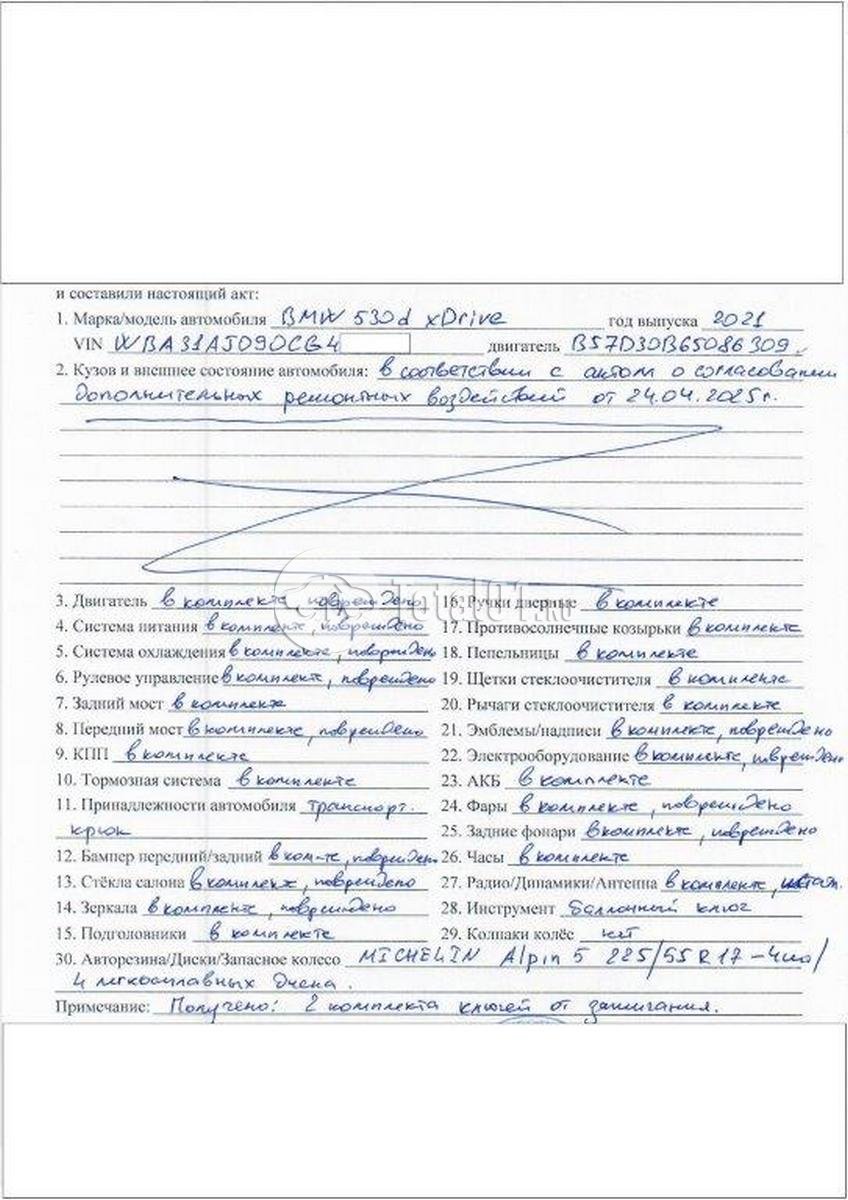 и составили настоящий акт:
1. Марка/модель автомобиля BMW 530d xDrive год выпуска 2021
VIN WBA31AJ090CG4 двигатель B57D30B65086309.
2. Кузов и внешнее состояние автомобиля: в соответствии с актом о согласовании
дополнительных ремонтных воздействий от 24.04.2025г.
3. Двигатель в комплекте повреждено
4. Система питания в комплекте, повреждено
5. Система охлаждения в комплекте, повреждено
6. Рулевое управление в комплекте, повреждено
7. Задний мост в комплекте
8. Передний мост в комплекте, повреждено
9. КПП в комплекте
10. Тормозная система в комплекте
11. Принадлежности автомобиля транспорт.
крюк
12. Бампер передний/задний в ком-те, повреждено
13. Стёкла салона в комплекте, повреждено
14. Зеркала в комплекте, повреждено
15. Подголовники в комплекте
16. Ручки дверные в комплекте
17. Противосолнечные козырьки в комплекте
18. Пепельницы в комплекте
19. Щетки стеклоочистителя в комплекте
20. Рычаги стеклоочистителя в комплекте
21. Эмблемы/надписи в комплекте, повреждено
22. Электрооборудование в комплекте, повреждено
23. АКБ в комплекте
24. Фары в комплекте, повреждено
25. Задние фонари в комплекте, повреждено
26. Часы в комплекте
27. Радио/Динамики/Антенна в комплекте,
28. Инструмент баллонный ключ
29. Колпаки колёс нет
30. Авторезина/Диски/Запасное колесо MICHELIN Alpin 5 225/55 R17 -4шт/
4 легкосплавных диска.
Примечание: Получено: 2 комплекта ключей от зажигания.
Total01.RU